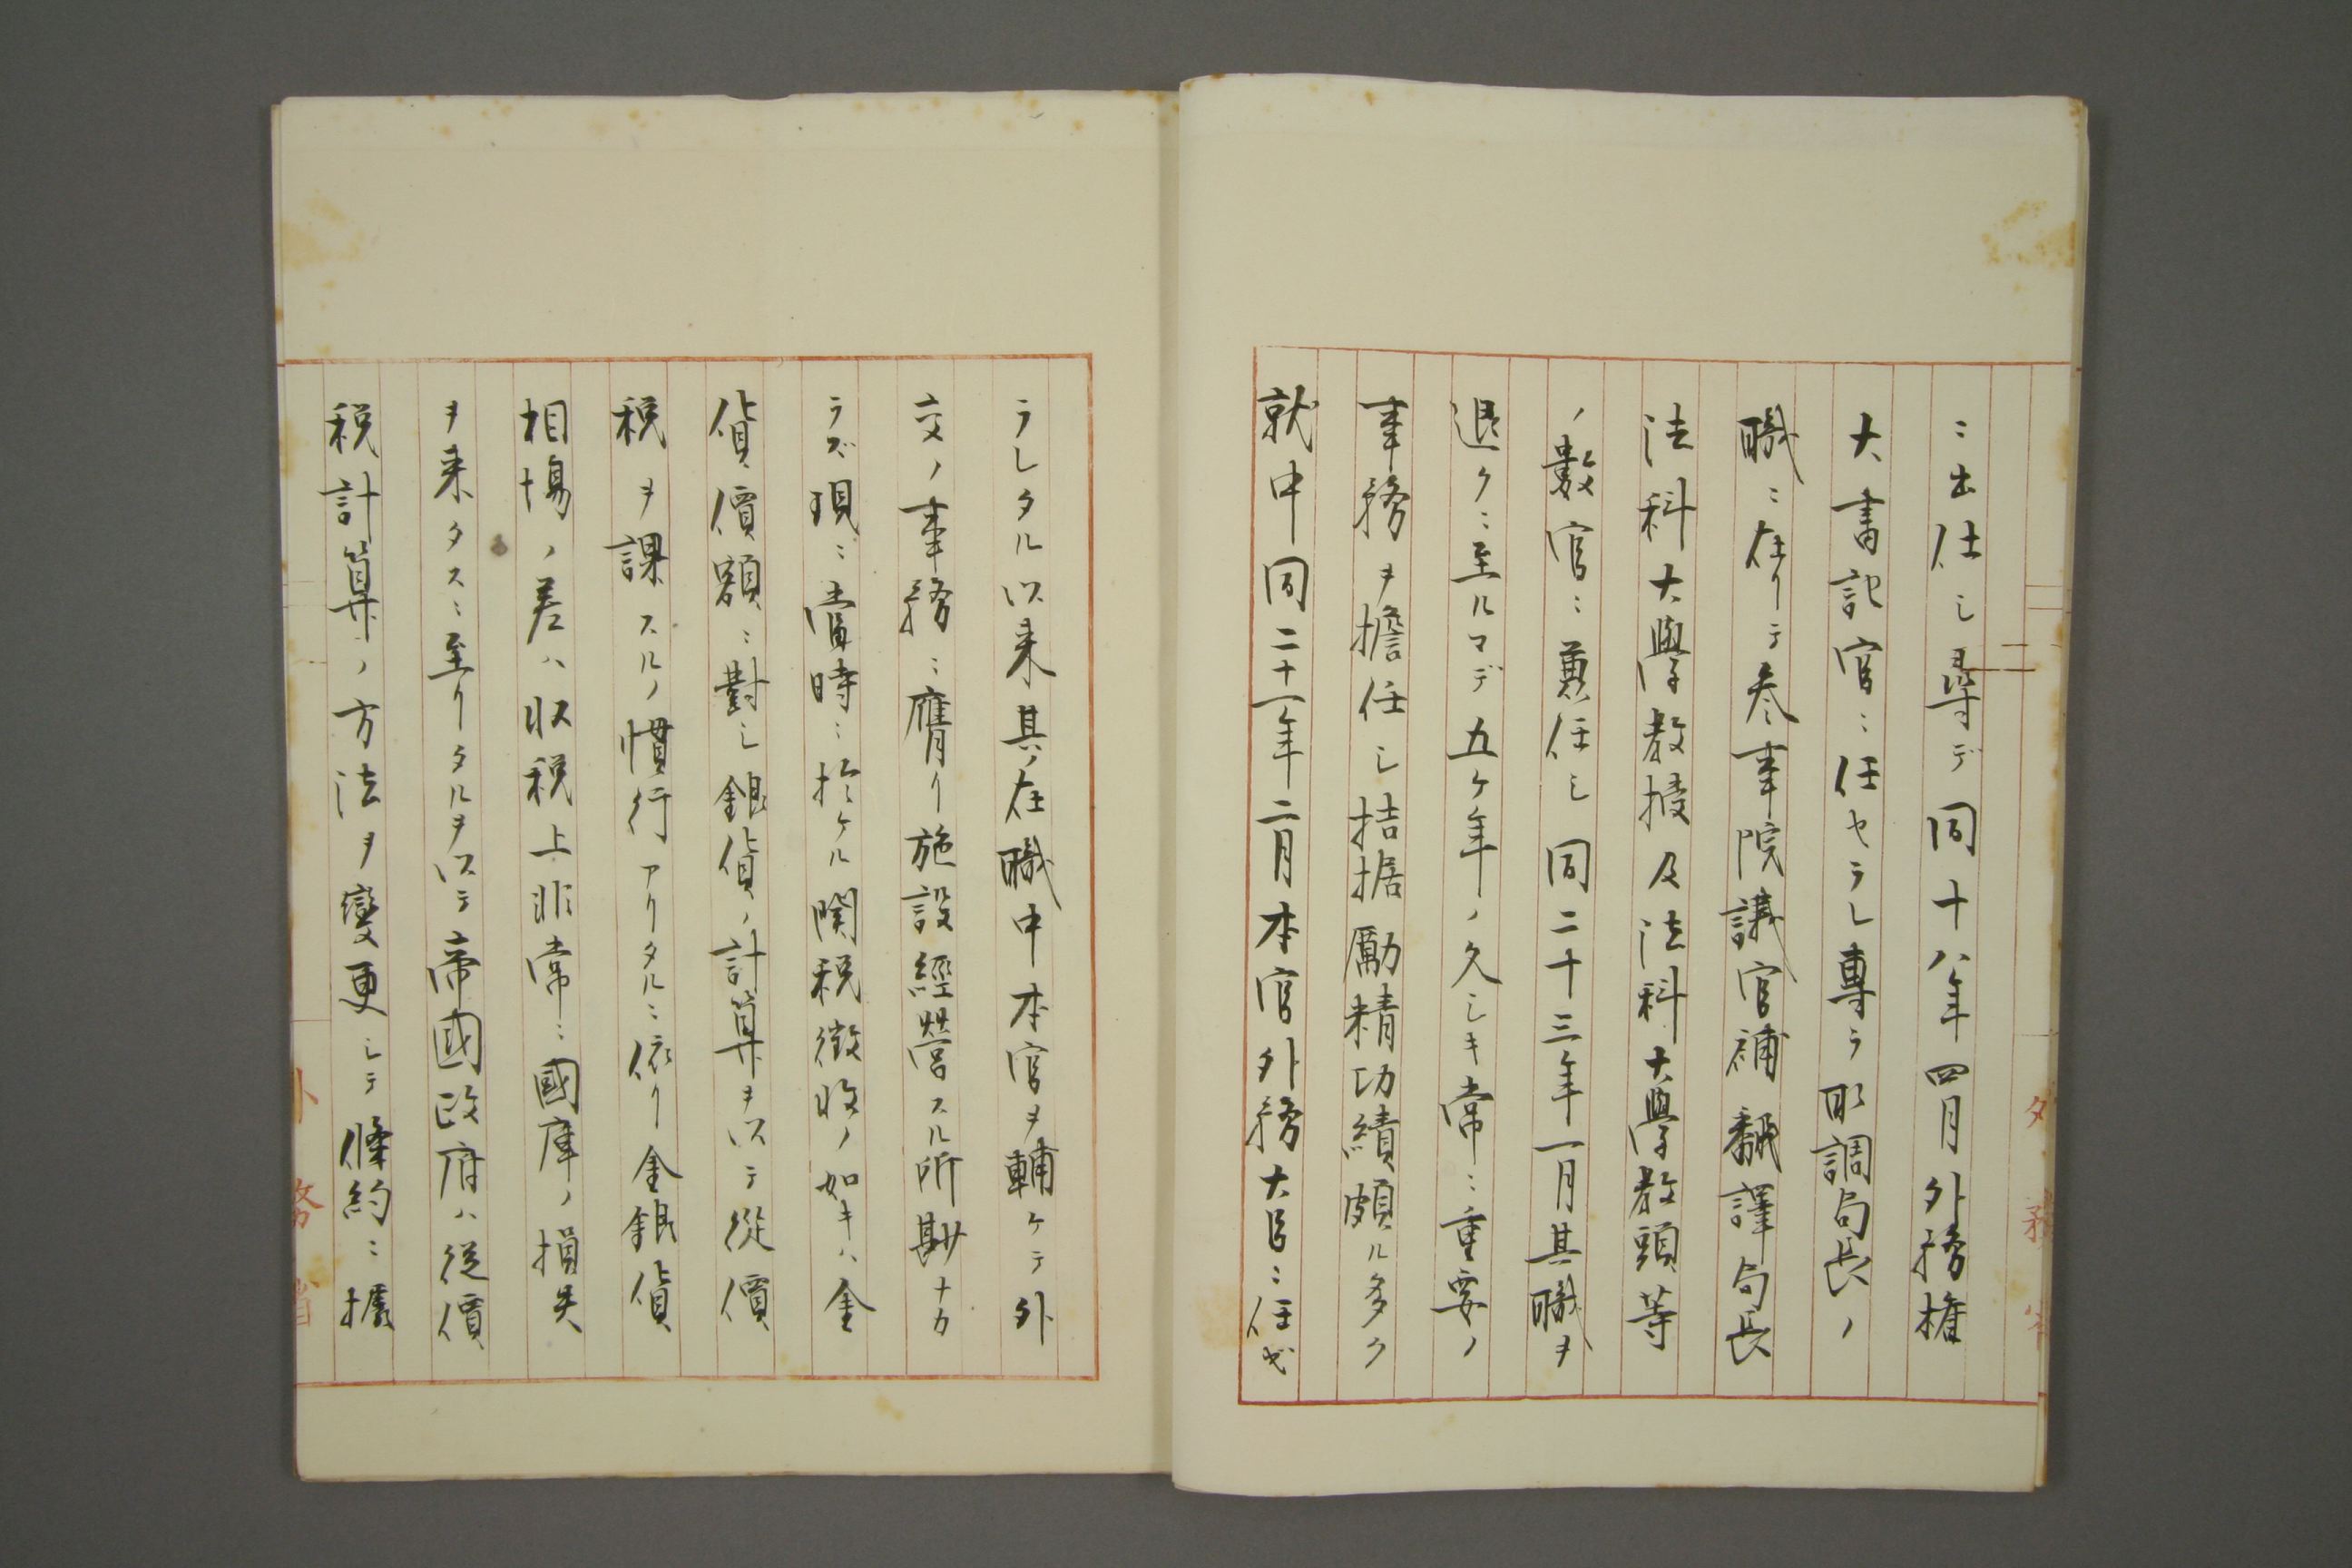 ニ出仕シ尋デ同十八年四月外務権
大書記官ニ任セラレ專ラ取調局長ノ
職ニ在リテ参事院議官補飜譯局長
法科大學教授及法科大學教頭等
ノ數官ニ兼任シ同二十三年一月其職ヲ
退クニ至ルマデ五ケ年ノ久シキ常ニ重要ノ
事務ヲ擔任シ拮据勵精功績頗ル多ク
就中同二十一年二月本官外務大臣ニ任セ
ラレタル以来其在職中本官ヲ輔ケテ外
交ノ事務ニ膺リ施設經營スル所尠ナカ
ラズ現ニ當時ニ於ケル関税徴收ノ如キハ金
貨價額ニ對シ銀貨ノ計算ヲ以テ從價
税ヲ課スルノ慣行アリタルニ依リ金銀貨
相場ノ差ハ収税上非常ニ國庫ノ損失
ヲ来タスニ至リタルヲ以テ帝國政府ハ從價
税計算ノ方法ヲ變更シテ條約ニ據
外務省